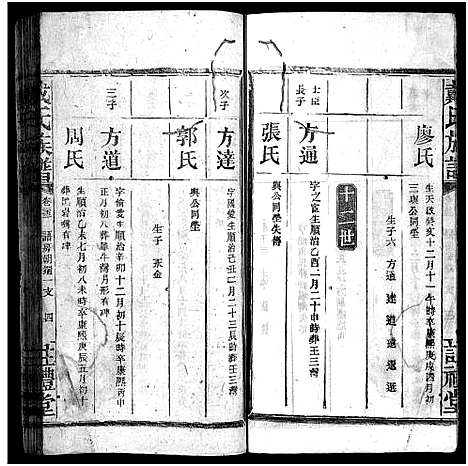 戴氏族譜
廖氏
生天啟癸亥十二月十一午時卒康熙庚戌四月初
三與公同塋
生子六 方通 達 道
十一世
士臣
長子
方通
字之宦生順治乙酉二月二十申時葬王三灣
張氏
與公同塋失傳
次子
方達
字國愛生順治己丑二月二十三辰時葬王三灣
郭氏
與公同塋
生子 永金
三子
方道
字倫愛生順治辛卯十二月初十辰時卒康熙丙申
正月初八葬犀牛灣月形有碑
周氏
生順治乙亥七月初八未時卒康熙庚辰五月初十
戴氏族譜
支 四
禮堂